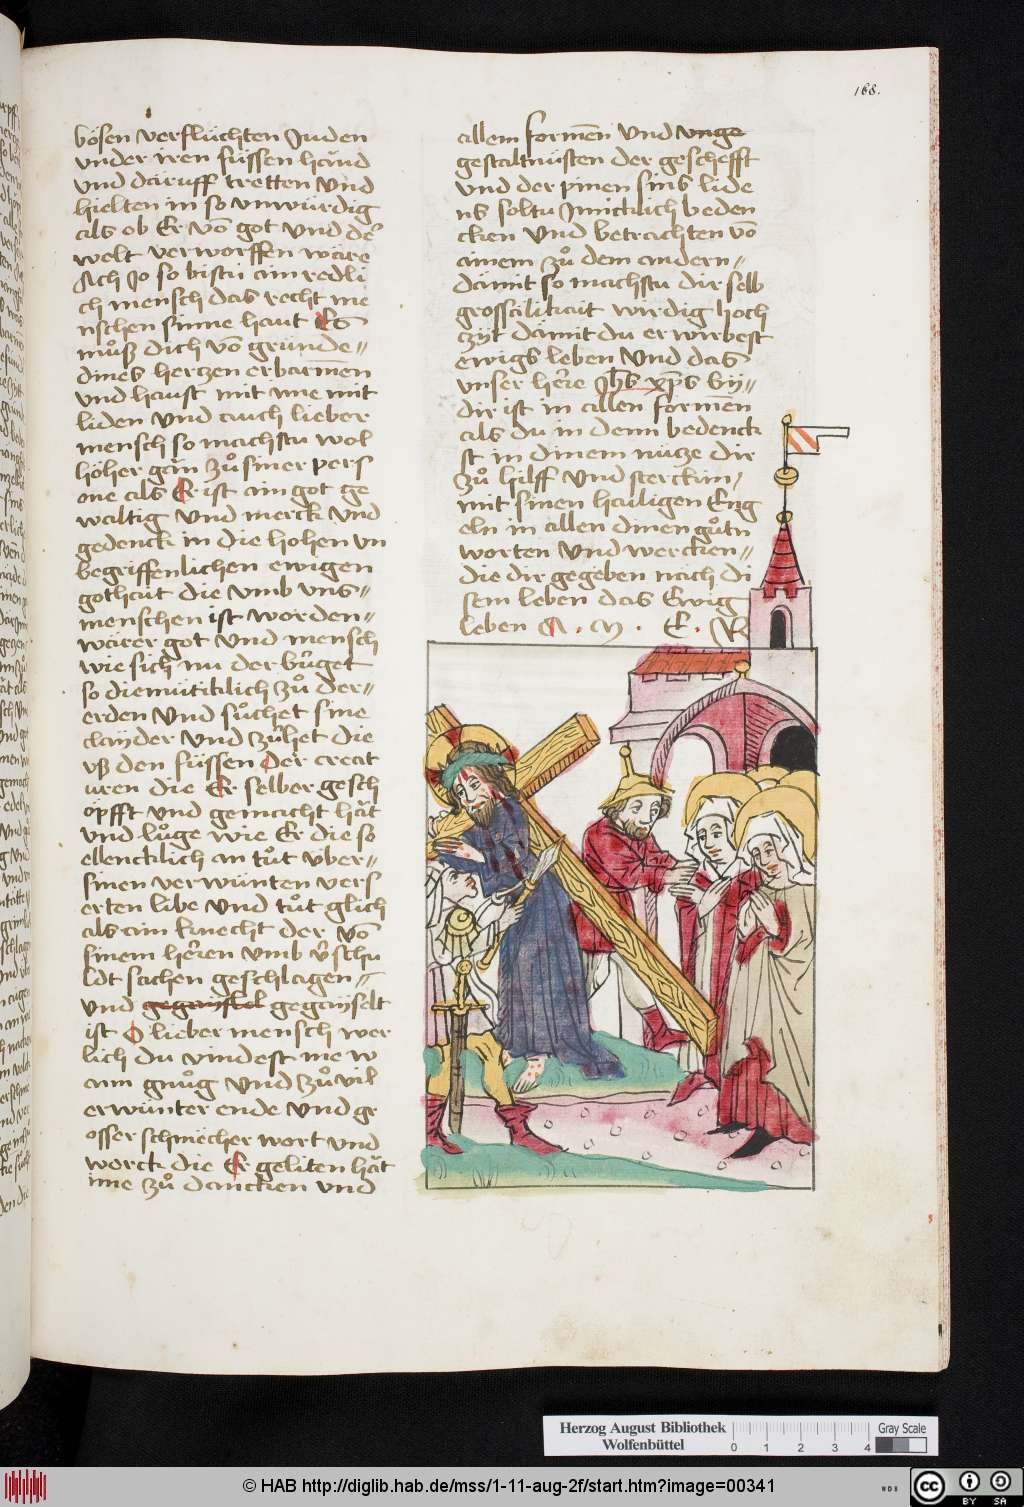 168.
bösen verflüchten Juden
vnder iren füssen händ
vnd däruff tretten vnd
hielten in so vnwürdig
als ob Er vō got vnd dẽ
welt verworffen wäre
Ach Jo so bistu ain redli
ch mensch das recht me
nschen sinne haut Es
můß dich vō gründe〃
dines hertzen erbarmēn
vnd haust mit ime mit
liden vnd auch lieber
mensch so machstu wol
höher gän zů siner pers
one als Er ist ain got ge
waltig vnd merck vnd
gedenck in die hohen vn
begriffenlichen ewigen
gothait die vmb vns〃
menschen ist worden〃
wärer got vnd mensch
wie sich nu der bürget
so diemüttiklich zů der〃
erden vnd sůchet sine
clayder vnd zühet die
vß den füssen Der creat
uren die Er selber gesch
öpfft vnd gemacht hät
vnd lůge wie Er die so
ellencklich an tůt über〃
sinen verwünten vers
erten libe vnd tůt glich
als ain knecht der vō
sinem heren vmb v̈schu
ldt sachen geschlagen〃
vnd gegaiselt gegayselt
ist O lieber mensch wer
lich du vindest ime w
am gnůg vnd zů vil
erwünter ende vnd gr
osser schmecher wort vnd
worck die Er geliten hät
ime zů dancken vnd
allem formēn vnd vnge
gestaltnüsten der geschefft
vnd der pinen sins lide
ns soltu Jnnicklich beden
cken vnd betrachten vō
ainem zů dem andern〃
dämit so machstu dir selb
grossäliklait wirdig hoch
zyt dämit du erwirbest
ewigs leben vnd das
vnser here Jhs xps by〃
dir ist in allen formēn
als du in denn bedenck
st in dinem nütze dir
zů hilff vnd sterckim
mit sinen hailigen Eng
eln in allen dinen gůtn
worten vnd wercken〃
die dir gegeben näch di
sem leben das Ewig
leben A . M . E . N
Herzog August Bibliothek
Wolfenbüttel
0 1 2 3 4
Gray Scale
© HAB http://diglib.hab.de/mss/1-11-aug-2f/start.htm?image=00341
WDB
cc BY SA